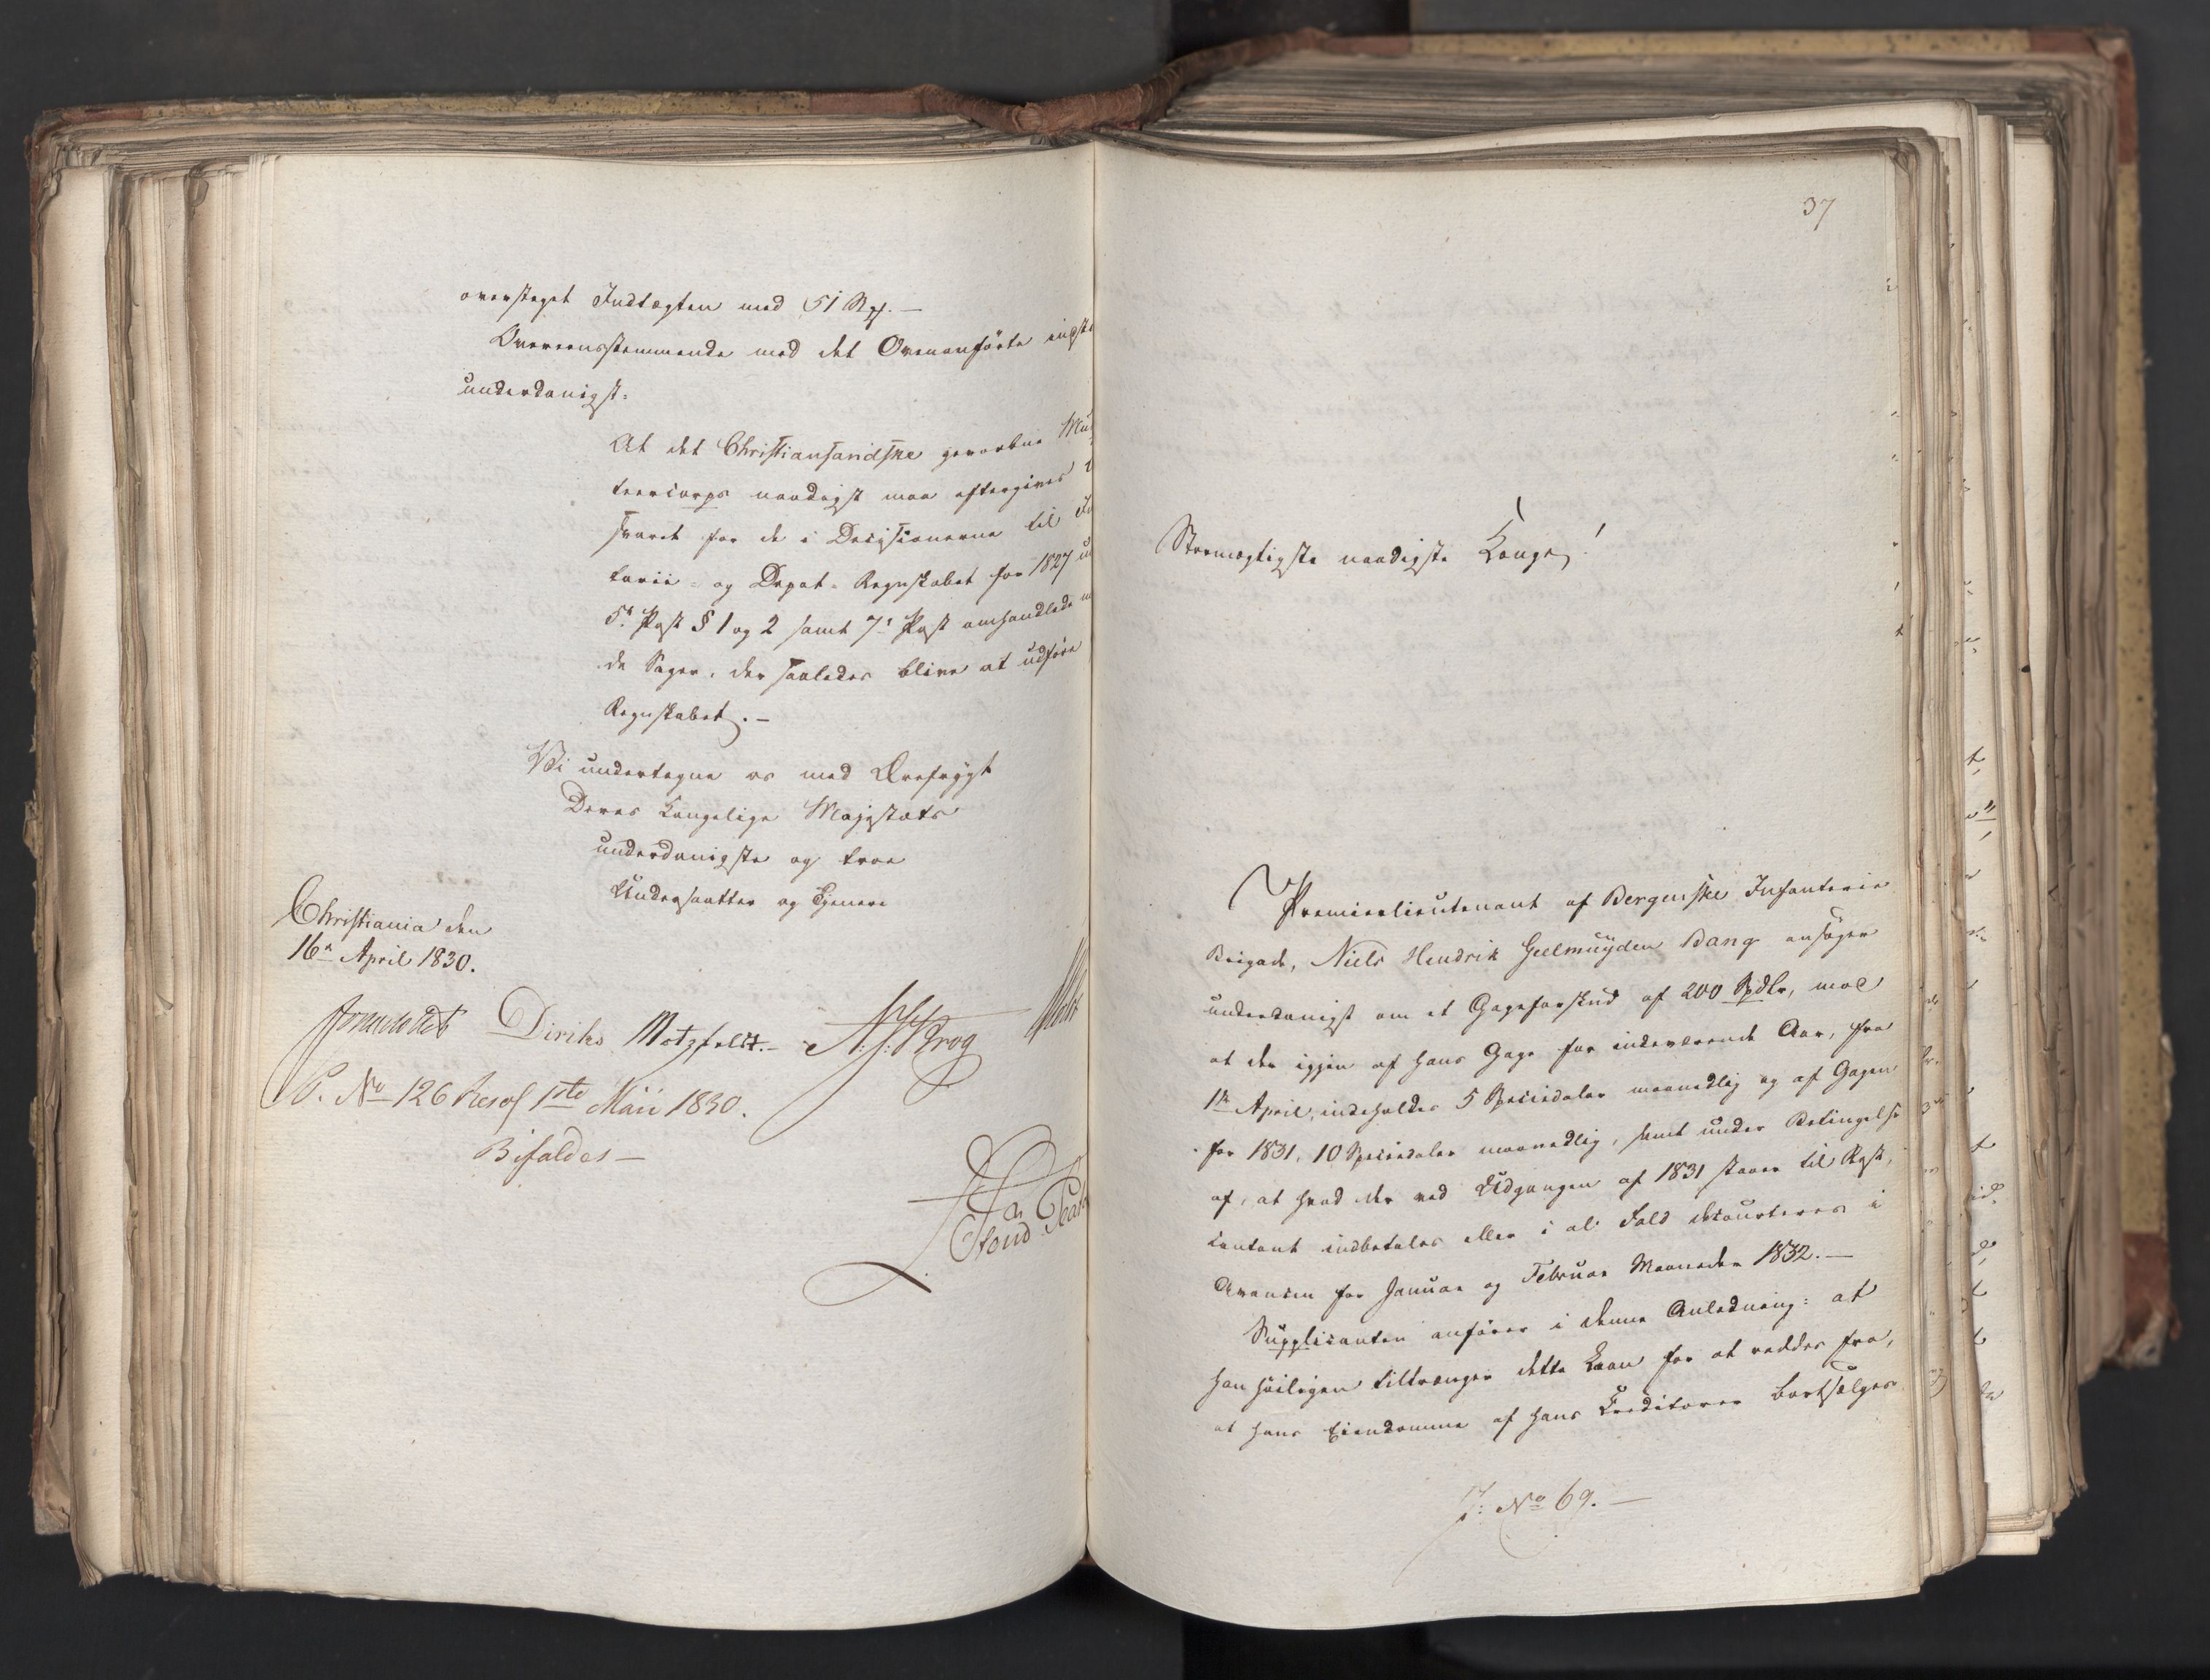 oversteget Indtægten med 51 Rß. —
Overeensstemmende med det Ovenanførte
underdanigst:
At det Christiansandske gevorbne
teercorps naadigst maa eftergives
svaret for de i Decisionerne til
tarii- og Depot-Regnskabet for 1827
5te Post § 1 og 2 samt 7de Post omhandlede
de Sager, der saaledes blive at udføre
Regnskabet. —
Vi undertegne os med Ærefrygt
Deres Kongelige Majestæts
underdanigste og troe
Undersaatter og Tjenere
Christiania den
16de April 1830.
Diriks Motzfeldt. — Krog
P. No 126 Resol 1ste Maii 1830.
Bifaldes —
37
Stormægtigste naadigste Konge!
Premierlieutenant af Bergenske Infanterie
Brigade, Niels Hendrik Geelmuyden Bang ansøger
underdanigst om et Gageforskud af 200 Spdlr, mod
at der igjen af hans Gage for indeværende Aar, fra
1ste April, indeholdes 5 Speciedaler maanedlig og af Gagen
for 1831, 10 Speciedaler maanedlig, samt under Betingelse
af, at hvad der ved Udgangen af 1831 staaer til Rest,
contant indbetales eller i al Fald decourteres i
Avancen for Januar og Februar Maaneder 1832. —
Supplicanten anfører i denne Anledning: at
han høiligen tiltrænger dette Laan for at reddes fra,
at hans Eiendomme af hans Creditorer bortsælges
J: No 69. —